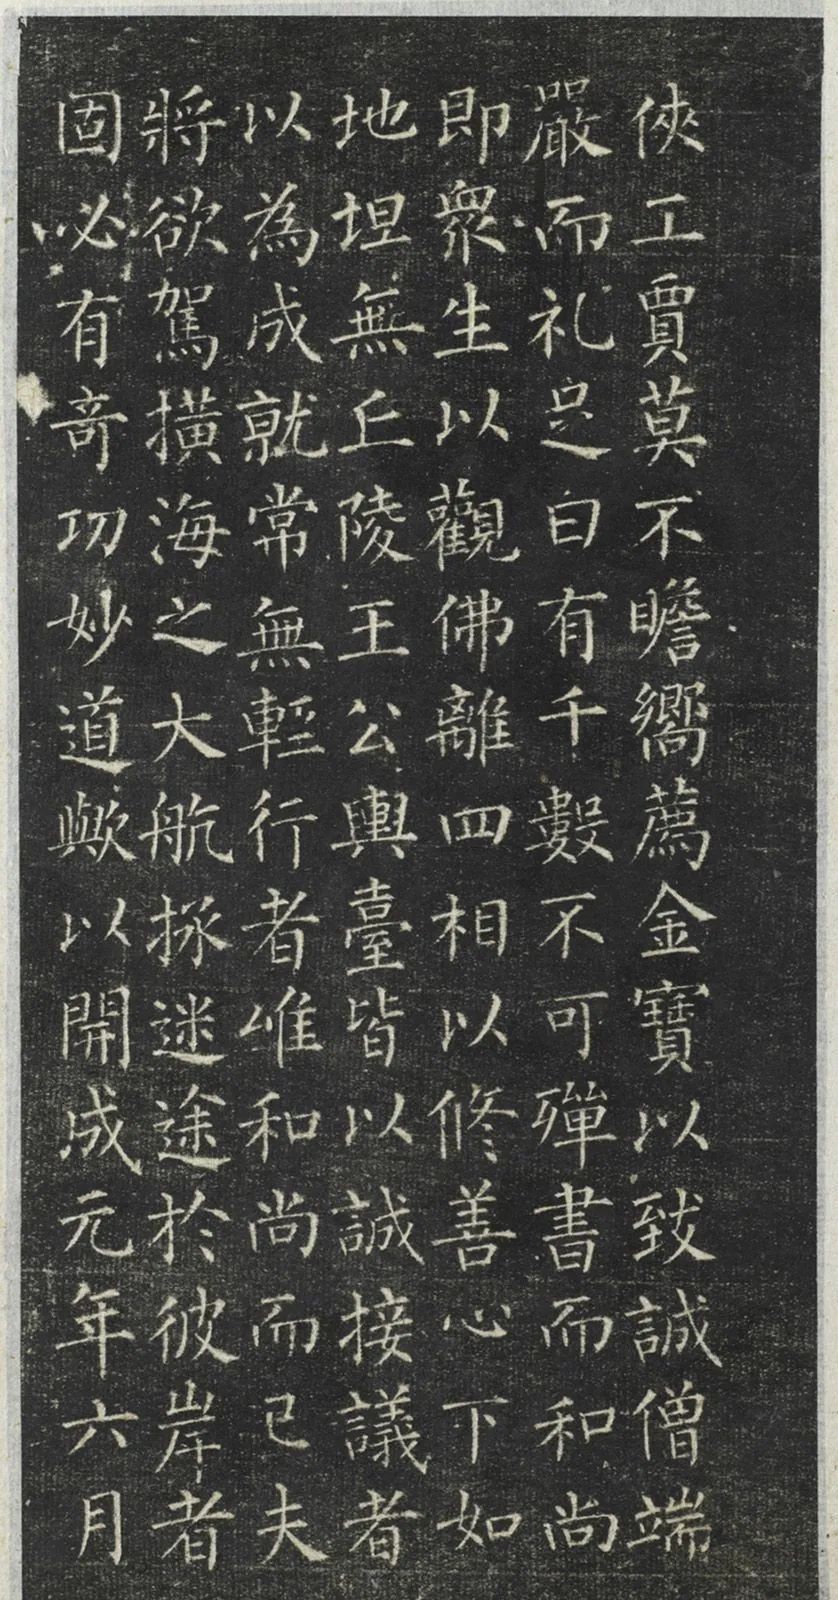 俠工賈莫不瞻嚮薦金寶以致誠僧端
嚴而礼足日有千數不可殫書而和尚
即衆生以觀佛離四相以修善心下如
地坦無丘陵王公輿臺皆以誠接議者
以為成就常無輕行者唯和尚而已夫
將欲駕橫海之大航拯迷途於彼岸者
固必有奇功妙道歟以開成元年六月